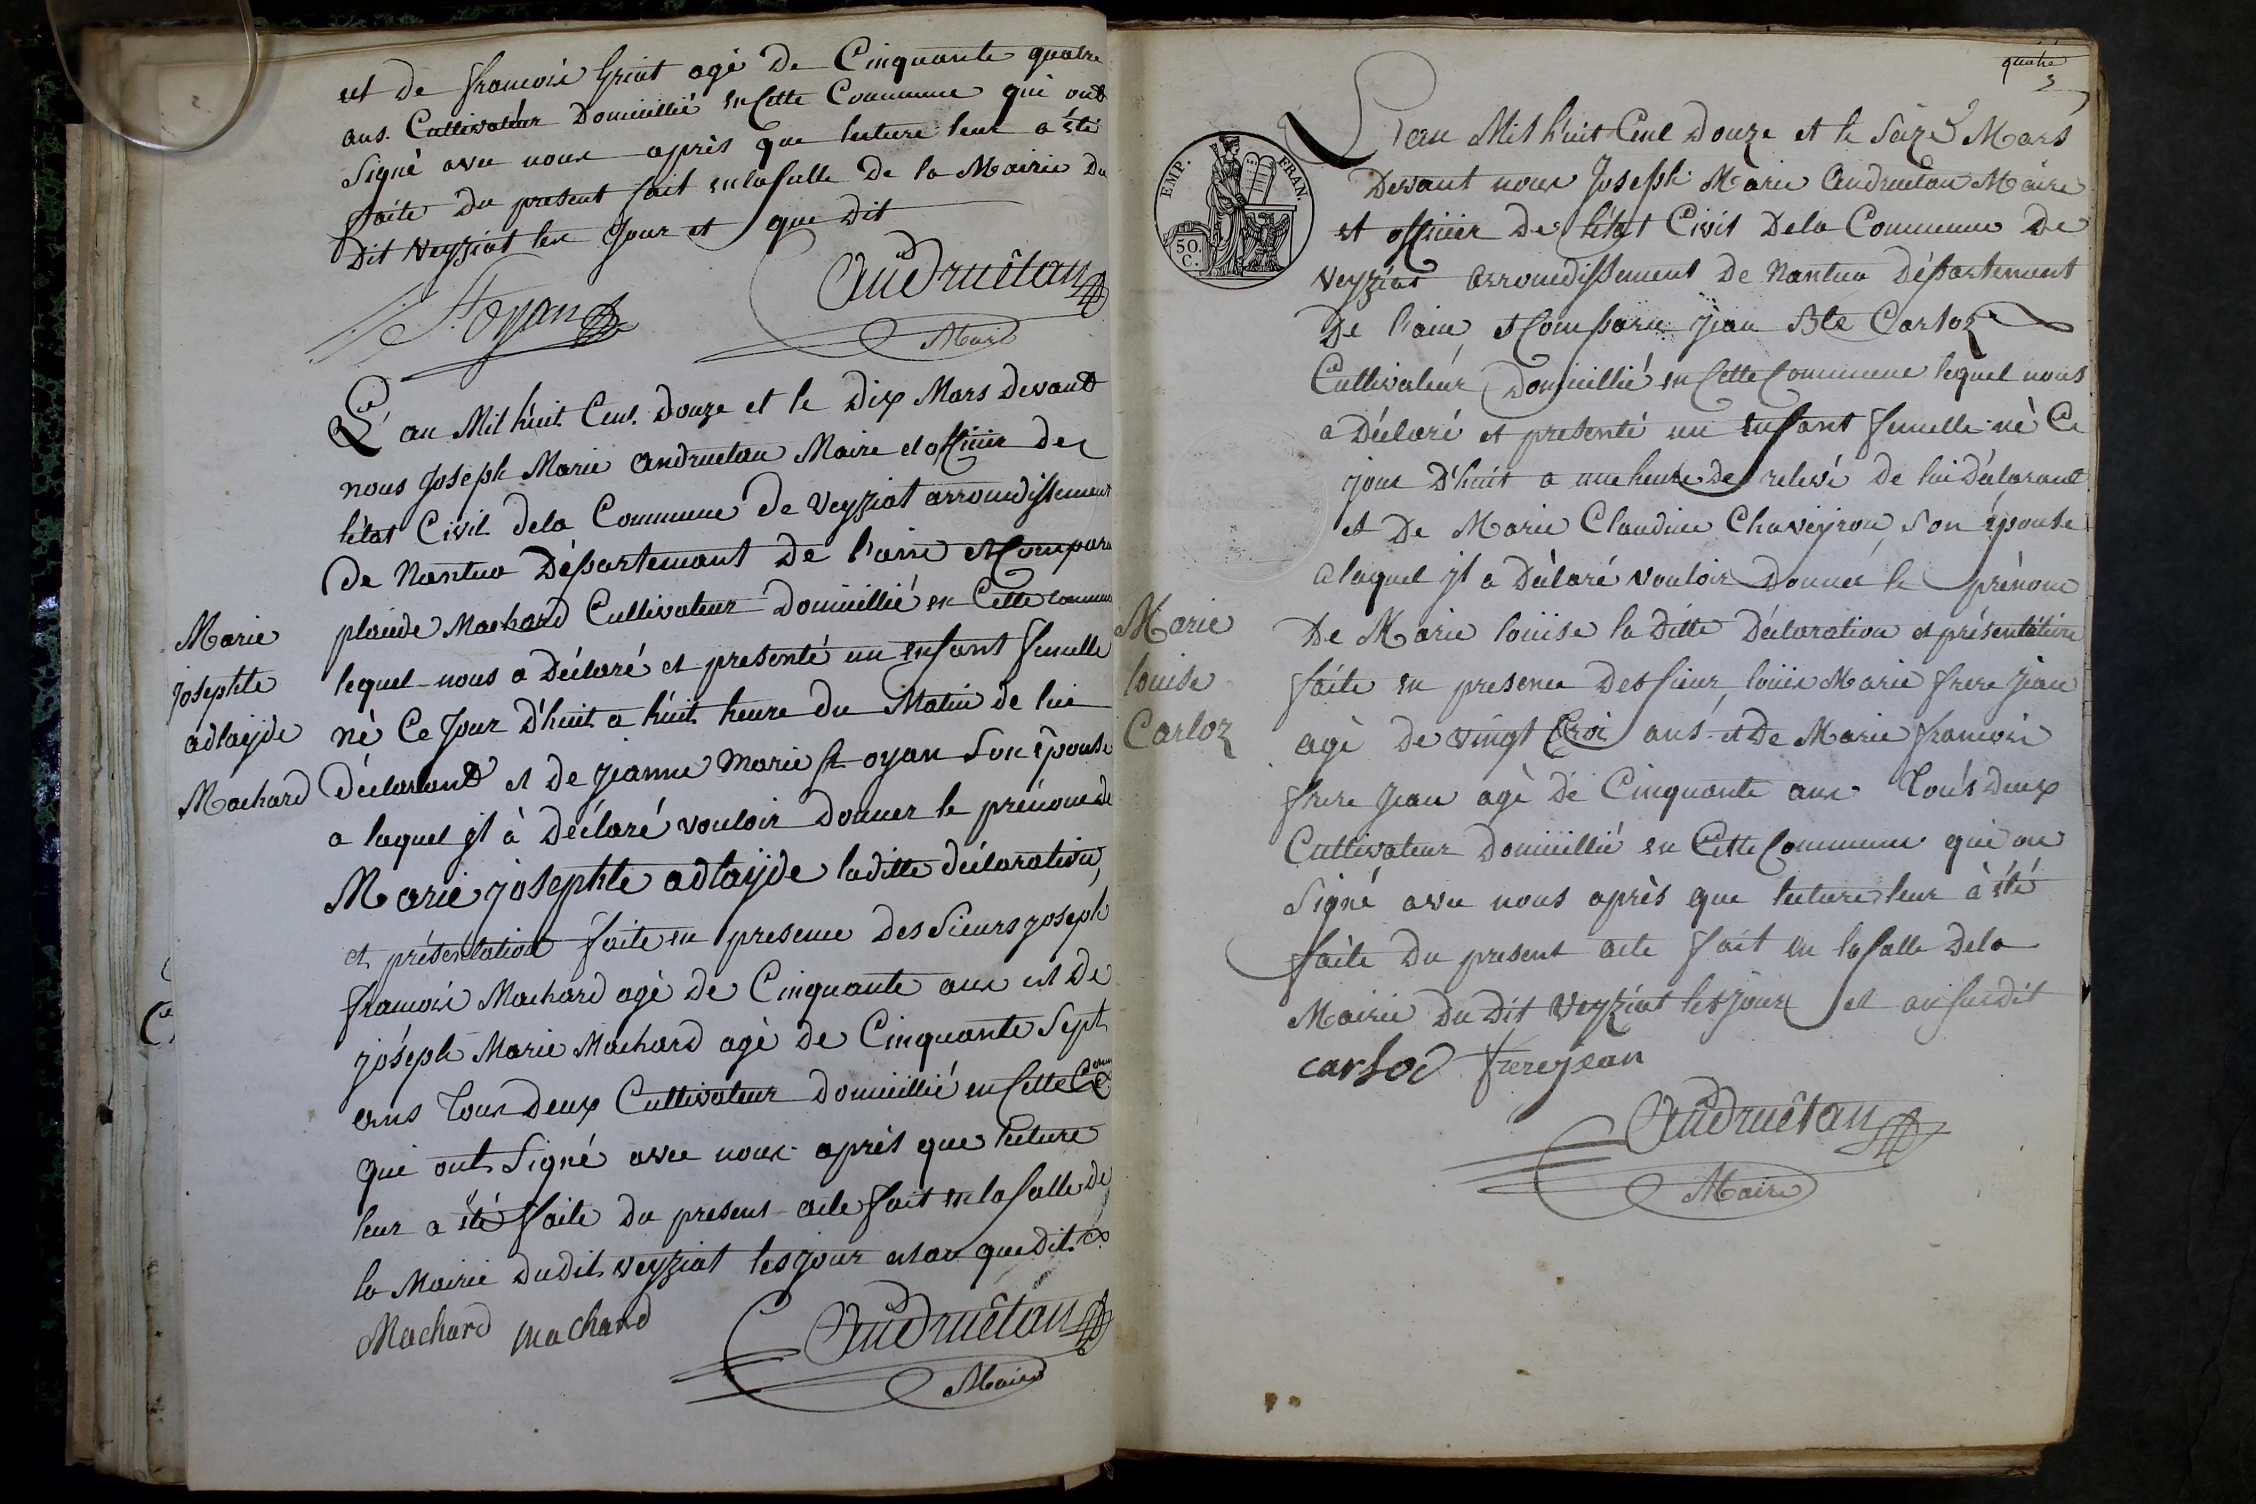 et de francois Griot agé de Cinquante quatre
ans. Cultivateur Domicillié en Cette Commune qui ont
Signé avec nous après que lecture leur a été
faite du present fait en la salle de la Mairie du
Dit Veyziat les Jour et que dit
St. Oyan
Andruétan
Maire
L'an Mil huit Cent Douze et le Dix Mars Devant
nous Joseph Marie andruetan Maire et officier de
l'état Civil dela Commune de Veyziat arrondissement
de Nantua Département De l'ain et Comparu
placide Machard Cultivateur Domicillié en Cette commune
lequel nous a Déclaré et presenté un enfant femelle
né Ce Jour D'huit a huit heure du Matin de lui
déclarant et de jeanne Marie st oyan Son épouse
a laquel jl à Déclaré vouloir donner le prénom de
Marie josephte adlayde laditte déclaration
et présentation faite en presence des Sieurs joseph
francois Machard agé de Cinquante ans et de
joséph Marie Machard agé de Cinquante Sept
ans Tous Deux Cultivateur domicillié en Cette Comm
qui ont Signé avec nous après que lecture
leur a été faite du present acte fait en la salle de
la Mairie dudit veyziat les jour et an que dit
Machard machard
Andruétan
Maire
Marie
josephte
adlayde
Machard
quatre
3
EMP. FRAN.
50.
C.
L'an Mil huit Cent Douze et le Seize Mars
Devant nous Joseph Marie Andruetan Maire
et officier De l'état Civil Dela Commune De
Veyziat arrondissement De Nantua Département
De l'ain, et Comparu jean Bte Carloz
Cultivateur Domicillié en Cette Commune lequel nous
a Déclaré et presenté un enfant femelle né Ce
jour D'huit a une heure De relevé De lui Déclarant
et De Marie Claudine Chaveyron, Son épouse
a laquel jl a Déclaré vouloir Donner le prénom
De Marie louise la Ditte Déclaration et présentation
faite en presence Des sieur louis Marie frere jean
agé De vingt Troi ans et De Marie francois
frere jean agé De Cinquante ans Tous Deux
Cultivateur Domicillié en Cette Commune qui on
Signé avec nous après que lecture leur à été
faite Du present acte fait en la salle Dela
Mairie Du Dit Veyziat les jour et an susdit
carloz frerejean
Andruétan
Maire
Marie
louise
Carloz